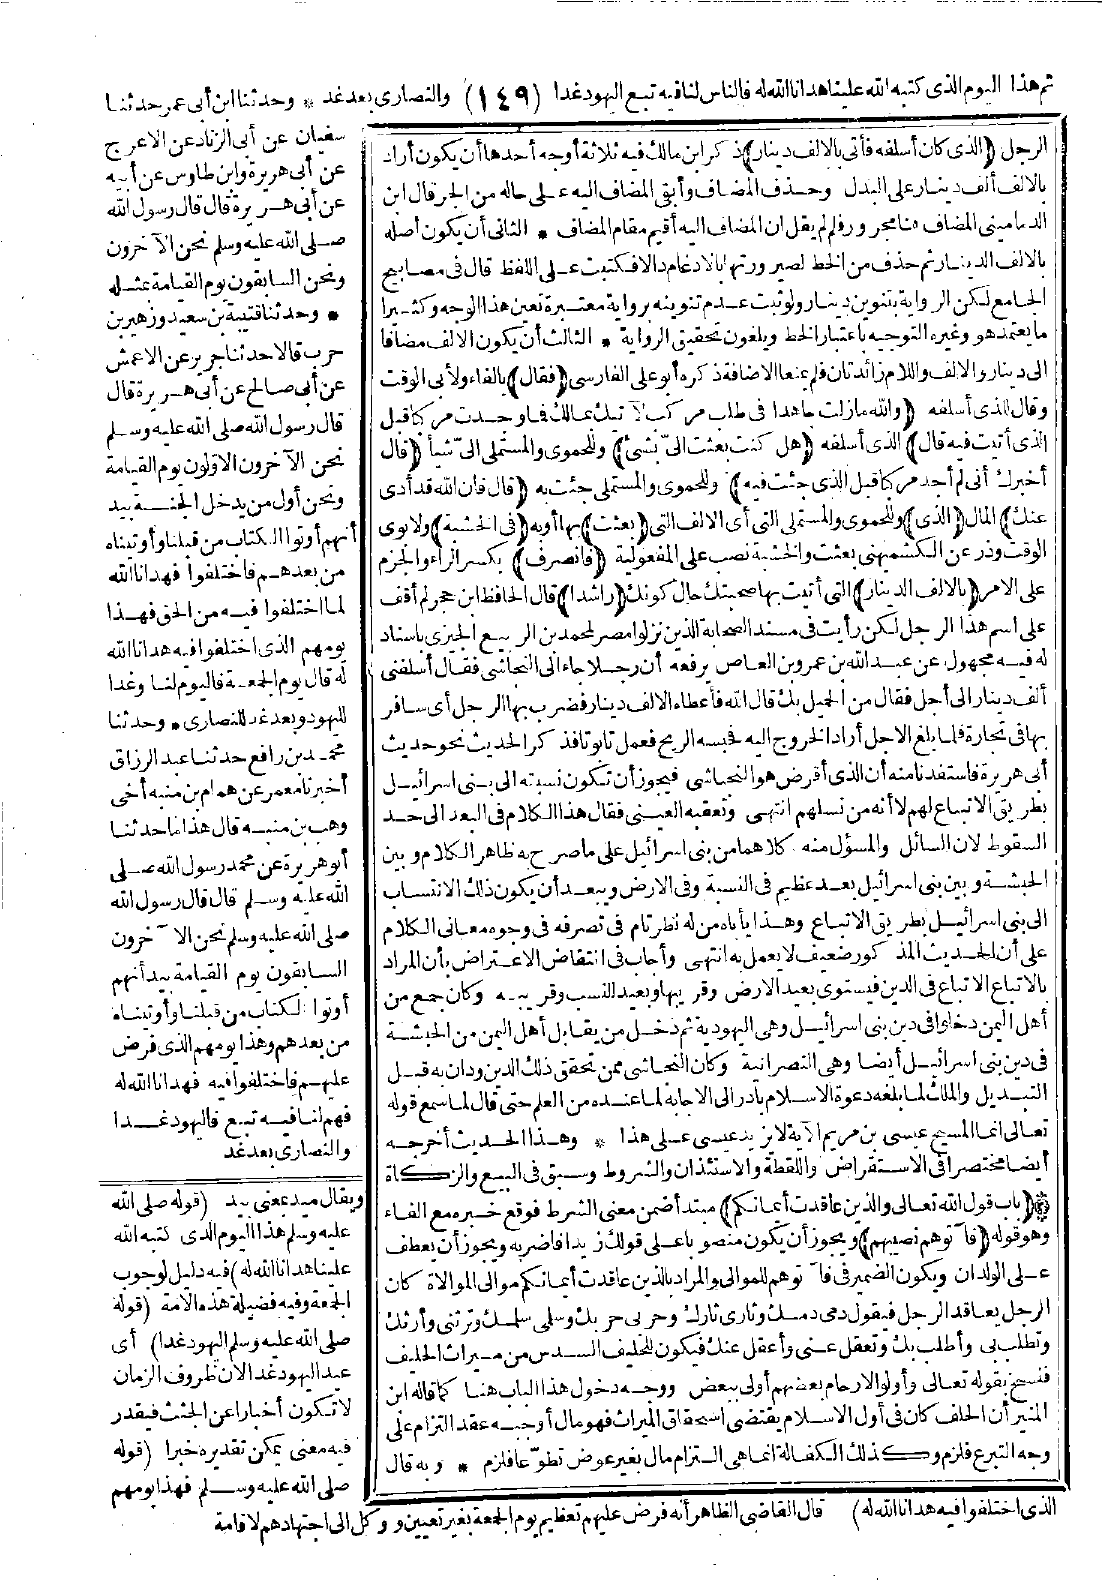 ثم هذا اليوم الذي كتبه الله علينا هدانا الله له فالناس لنا فيه تبع اليهود غدا (١٤٩) والنصارى بعد غد * وحدثنا ابن أبي عمر حدثنا
سفيان عن أبي الزناد عن الاعرج
عن أبي هريرة وابن طاوس عن أبيه
عن أبي هريرة قال قال رسول الله
صلى الله عليه وسلم نحن الآخرون
ونحن السابقون يوم القيامة بمثله
* وحدثنا قتيبة بن سعيد وزهير بن
حرب قالا حدثنا جرير عن الاعمش
عن أبي صالح عن أبي هريرة قال
قال رسول الله صلى الله عليه وسلم
نحن الآخرون الاولون يوم القيامة
ونحن أول من يدخل الجنة بيد
أنهم أوتوا الكتاب من قبلنا وأوتيناه
من بعدهم فاختلفوا فهدانا الله
لما اختلفوا فيه من الحق فهذا
يومهم الذي اختلفوا فيه هدانا الله
له قال يوم الجمعة فاليوم لنا وغدا
لليهود وبعد غد للنصارى * وحدثنا
محمد بن رافع حدثنا عبد الرزاق
أخبرنا معمر عن همام بن منبه أخي
وهب بن منبه قال هذا ما حدثنا
أبو هريرة عن محمد رسول الله صلى
الله عليه وسلم قال قال رسول الله
صلى الله عليه وسلم نحن الآخرون
السابقون يوم القيامة بيد أنهم
أوتوا الكتاب من قبلنا وأوتيناه
من بعدهم وهذا يومهم الذي فرض
عليهم فاختلفوا فيه فهدانا الله له
فهم لنا فيه تبع فاليهود غدا
والنصارى بعد غد
الرجل (الذي كان أسلفه فأتى بالالف دينار) ذكر ابن مالك فيه ثلاثة أوجه أحدها أن يكون أراد
بالالف ألف دينار على البدل وحذف المضاف وأبقى المضاف اليه على حاله من الجر قال ابن
الدماميني المضاف هنا مجرور فلم لم يقل ان المضاف اليه أقيم مقام المضاف * الثاني أن يكون أصله
بالالف الدينار ثم حذف من الخط لصيرورتها بالادغام دالا فكتبت على اللفظ قال في مصابيح
الجامع لكن الرواية بتنوين دينار ولو ثبت عدم تنوينه برواية معتبرة تعين هذا الوجه وكثيرا
ما يعتمد هو وغيره التوجيه باعتبار الخط ويلغون تحقيق الرواية * الثالث أن يكون الالف مضافا
الى دينار والالف واللام زائدتان فلم يمنعا الاضافة ذكره أبو علي الفارسي (فقال) بالفاء ولابي الوقت
وقال للذي أسلفه (والله ما زلت جاهدا في طلب مركب لآتيك بمالك فما وجدت مركبا قبل
الذي أتيت فيه قال) الذي أسلفه (هل كنت بعثت الىّ بشئ) وللحموي والمستملي الىّ شيأ (قال
أخبرك أني لم أجد مركبا قبل الذي جئت فيه) وللحموي والمستملي جئت به (قال فان الله قد أدى
عنك) المال (الذي) وللحموي والمستملي التي أي الالف التي (بعثت) بها أو به (في الخشبة) ولابوي
الوقت وذر عن الكشميهني بعثت والخشبة نصب على المفعولية (فانصرف) بكسر الراء والجزم
على الامر (بالالف الدينار) التي أتيت بها صحبتك حال كونك (راشدا) قال الحافظ ابن حجر لم أقف
على اسم هذا الرجل لكن رأيت في مسند الصحابة الذين نزلوا مصر لمحمد بن الربيع الجيزي باسناد
له فيه مجهول عن عبد الله بن عمرو بن العاص يرفعه أن رجلا جاء الى النجاشي فقال أسلفني
ألف دينار الى أجل فقال من الحميل بك قال الله فأعطاه الالف دينار فضرب بها الرجل أي سافر
بها في تجارة فلما بلغ الاجل أراد الخروج اليه فحبسه الريح فعمل تابوتا فذكر الحديث نحو حديث
أبي هريرة فاستفدنا منه أن الذي أقرض هو النجاشي فيجوز أن تكون نسبته الى بني اسرائيل
بطريق الاتباع لهم لا أنه من نسلهم انتهى وتعقبه العيني فقال هذا الكلام في البعد الى حد
السقوط لان السائل والمسؤل منه كلاهما من بني اسرائيل على ما صرح به ظاهر الكلام وبين
الحبشة وبين بني اسرائيل بعد عظيم في النسبة وفي الارض ويبعد أن يكون ذلك الانتساب
الى بني اسرائيل بطريق الاتباع وهذا يأباه من له نظر تام في تصرفه في وجوه معاني الكلام
على أن الحديث المذكور ضعيف لا يعمل به انتهى وأجاب في انتقاض الاعتراض بأن المراد
بالاتباع الاتباع في الدين فيستوي بعيد الارض وقريبها وبعيد النسب وقريبه وكان جمع من
أهل اليمن دخلوا في دين بني اسرائيل وهي اليهودية ثم دخل من يقابل أهل اليمن من الحبشة
في دين بني اسرائيل أيضا وهي النصرانية وكان النجاشي ممن تحقق ذلك الدين ودان به قبل
التبديل والملك لما بلغه دعوة الاسلام بادر الى الاجابة لما عنده من العلم حتى قال لما سمع قوله
تعالى انما المسيح عيسى بن مريم الآية لا يزيد عيسى على هذا * وهذا الحديث أخرجه
أيضا مختصرا في الاستقراض واللقطة والاستئذان والشروط وسبق في البيع والزكاة
(باب قول الله تعالى والذين عاقدت أيمانكم) مبتدأ ضمن معنى الشرط فوقع خبره مع الفاء
وهو قوله (فآتوهم نصيبهم) ويجوز أن يكون منصوبا على قولك زيدا فاضربه ويجوز أن يعطف
على الولدان ويكون الضمير في فآتوهم للموالي والمراد بالذين عاقدت أيمانكم موالي الموالاة كان
الرجل يعاقد الرجل فيقول دمي دمك وثاري ثارك وحربي حربك وسلمي سلمك وترثني وأرثك
وتطلب بي وأطلب بك وتعقل عني وأعقل عنك فيكون للحليف السدس من ميراث الحليف
فنسخ بقوله تعالى وأولوا الارحام بعضهم أولى ببعض ووجه دخول هذا الباب هنا كما قاله ابن
المنير أن الحلف كان في أول الاسلام يقتضي استحقاق الميراث فهو مال أوجبه عقد التزام على
وجه التبرع فلزم وكذلك الكفالة انما هي التزام مال بغير عوض تطوّعا فلزم * وبه قال
ويقال ميد بمعنى بيد (قوله صلى الله
عليه وسلم هذا اليوم الذي كتبه الله
علينا هدانا الله له) فيه دليل لوجوب
الجمعة وفيه فضيلة هذه الامة (قوله
صلى الله عليه وسلم اليهود غدا) أي
عيد اليهود غدا لان ظروف الزمان
لا تكون أخبارا عن الجثث فيقدر
فيه معنى يمكن تقديره خبرا (قوله
صلى الله عليه وسلم فهذا يومهم
الذي اختلفوا فيه هدانا الله له) قال القاضي الظاهر أنه فرض عليهم تعظيم يوم الجمعة بغير تعيين ووكل الى اجتهادهم لاقامة